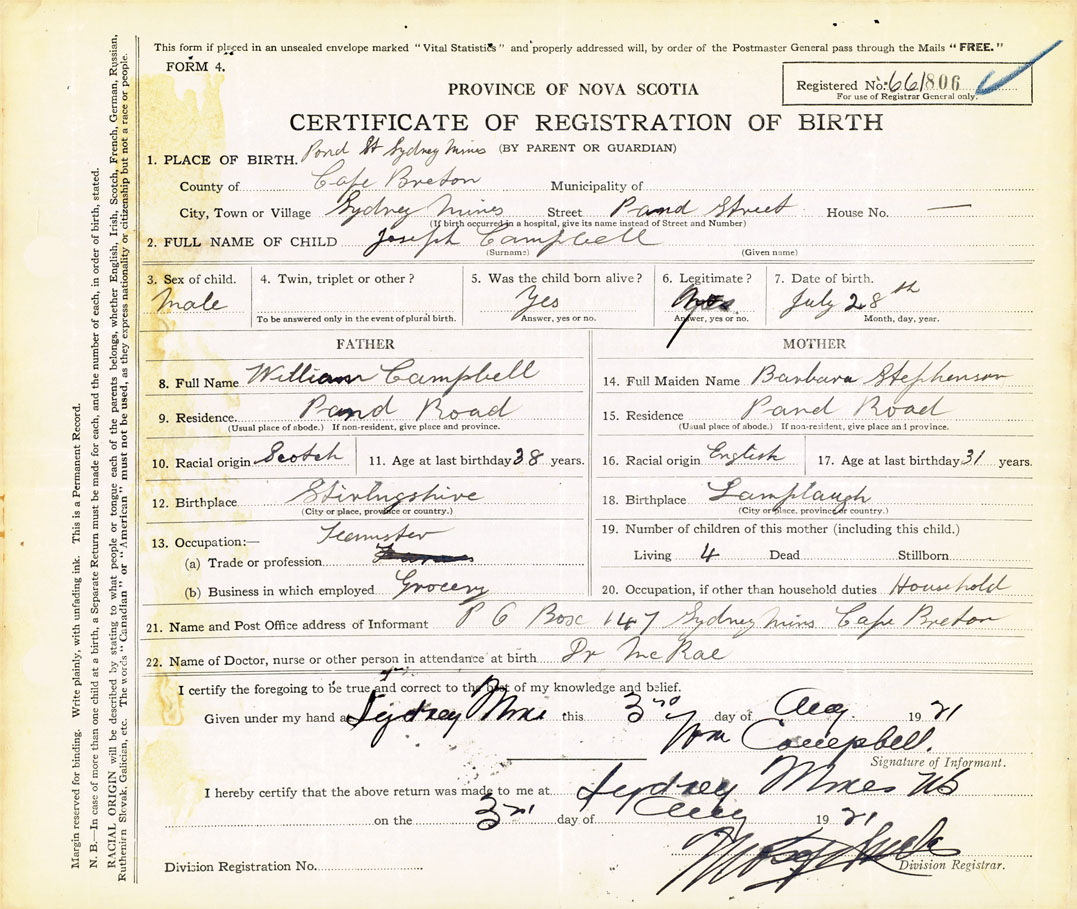 This form if placed in an unsealed envelope marked "Vital Statistics" and properly addressed will, by order of the Postmaster General pass through the Mails "FREE."
FORM 4.
Registered No. 661806
For use of Registrar General only.
PROVINCE OF NOVA SCOTIA
CERTIFICATE OF REGISTRATION OF BIRTH
(BY PARENT OR GUARDIAN)
1. PLACE OF BIRTH. Pond St Sydney Mines
County of Cape Breton Municipality of
City, Town or Village Sydney Mines Street Pond Street House No. —
(If birth occurred in a hospital, give its name instead of Street and Number)
2. FULL NAME OF CHILD Joseph Campbell
(Surname) (Given name)
3. Sex of child. 4. Twin, triplet or other? 5. Was the child born alive? 6. Legitimate? 7. Date of birth.
Male Yes Yes July 28th
To be answered only in the event of plural birth. Answer, yes or no. Answer, yes or no. Month, day, year.
FATHER
8. Full Name William Campbell
9. Residence. Pand Road
(Usual place of abode.) If non-resident, give place and province.
10. Racial origin Scotch 11. Age at last birthday 38 years.
12. Birthplace Stirlingshire
(City or place, province or country.)
13. Occupation:— Teamster
(a) Trade or profession
(b) Business in which employed Grocery
MOTHER
14. Full Maiden Name Barbara Stephenson
15. Residence Pand Road
(Usual place of abode.) If non-resident, give place and province.
16. Racial origin English 17. Age at last birthday 31 years.
18. Birthplace Lamplaugh
(City or place, province or country.)
19. Number of children of this mother (including this child.)
Living 4 Dead Stillborn
20. Occupation, if other than household duties Household
21. Name and Post Office address of Informant P O Box 147 Sydney Mins Cape Breton
22. Name of Doctor, nurse or other person in attendance at birth Dr McRae
I certify the foregoing to be true and correct to the best of my knowledge and belief.
Given under my hand at Sydney Mines this 3rd day of Aug. 1921
Wm Campbell.
Signature of Informant.
I hereby certify that the above return was made to me at Sydney Mines NS
on the 3rd day of Aug 1921
Division Registrar.
Division Registration No.
Margin reserved for binding. Write plainly, with unfading ink. This is a Permanent Record.
N. B.—In case of more than one child at a birth, a Separate Return must be made for each, and the number of each, in order of birth, stated.
RACIAL ORIGIN will be described by stating to what people or tongue each of the parents belongs, whether English, Irish, Scotch, French, German, Russian,
Ruthenian Slovak, Galician, etc. The words "Canadian" or "American" must not be used, as they express nationality or citizenship but not a race or people.